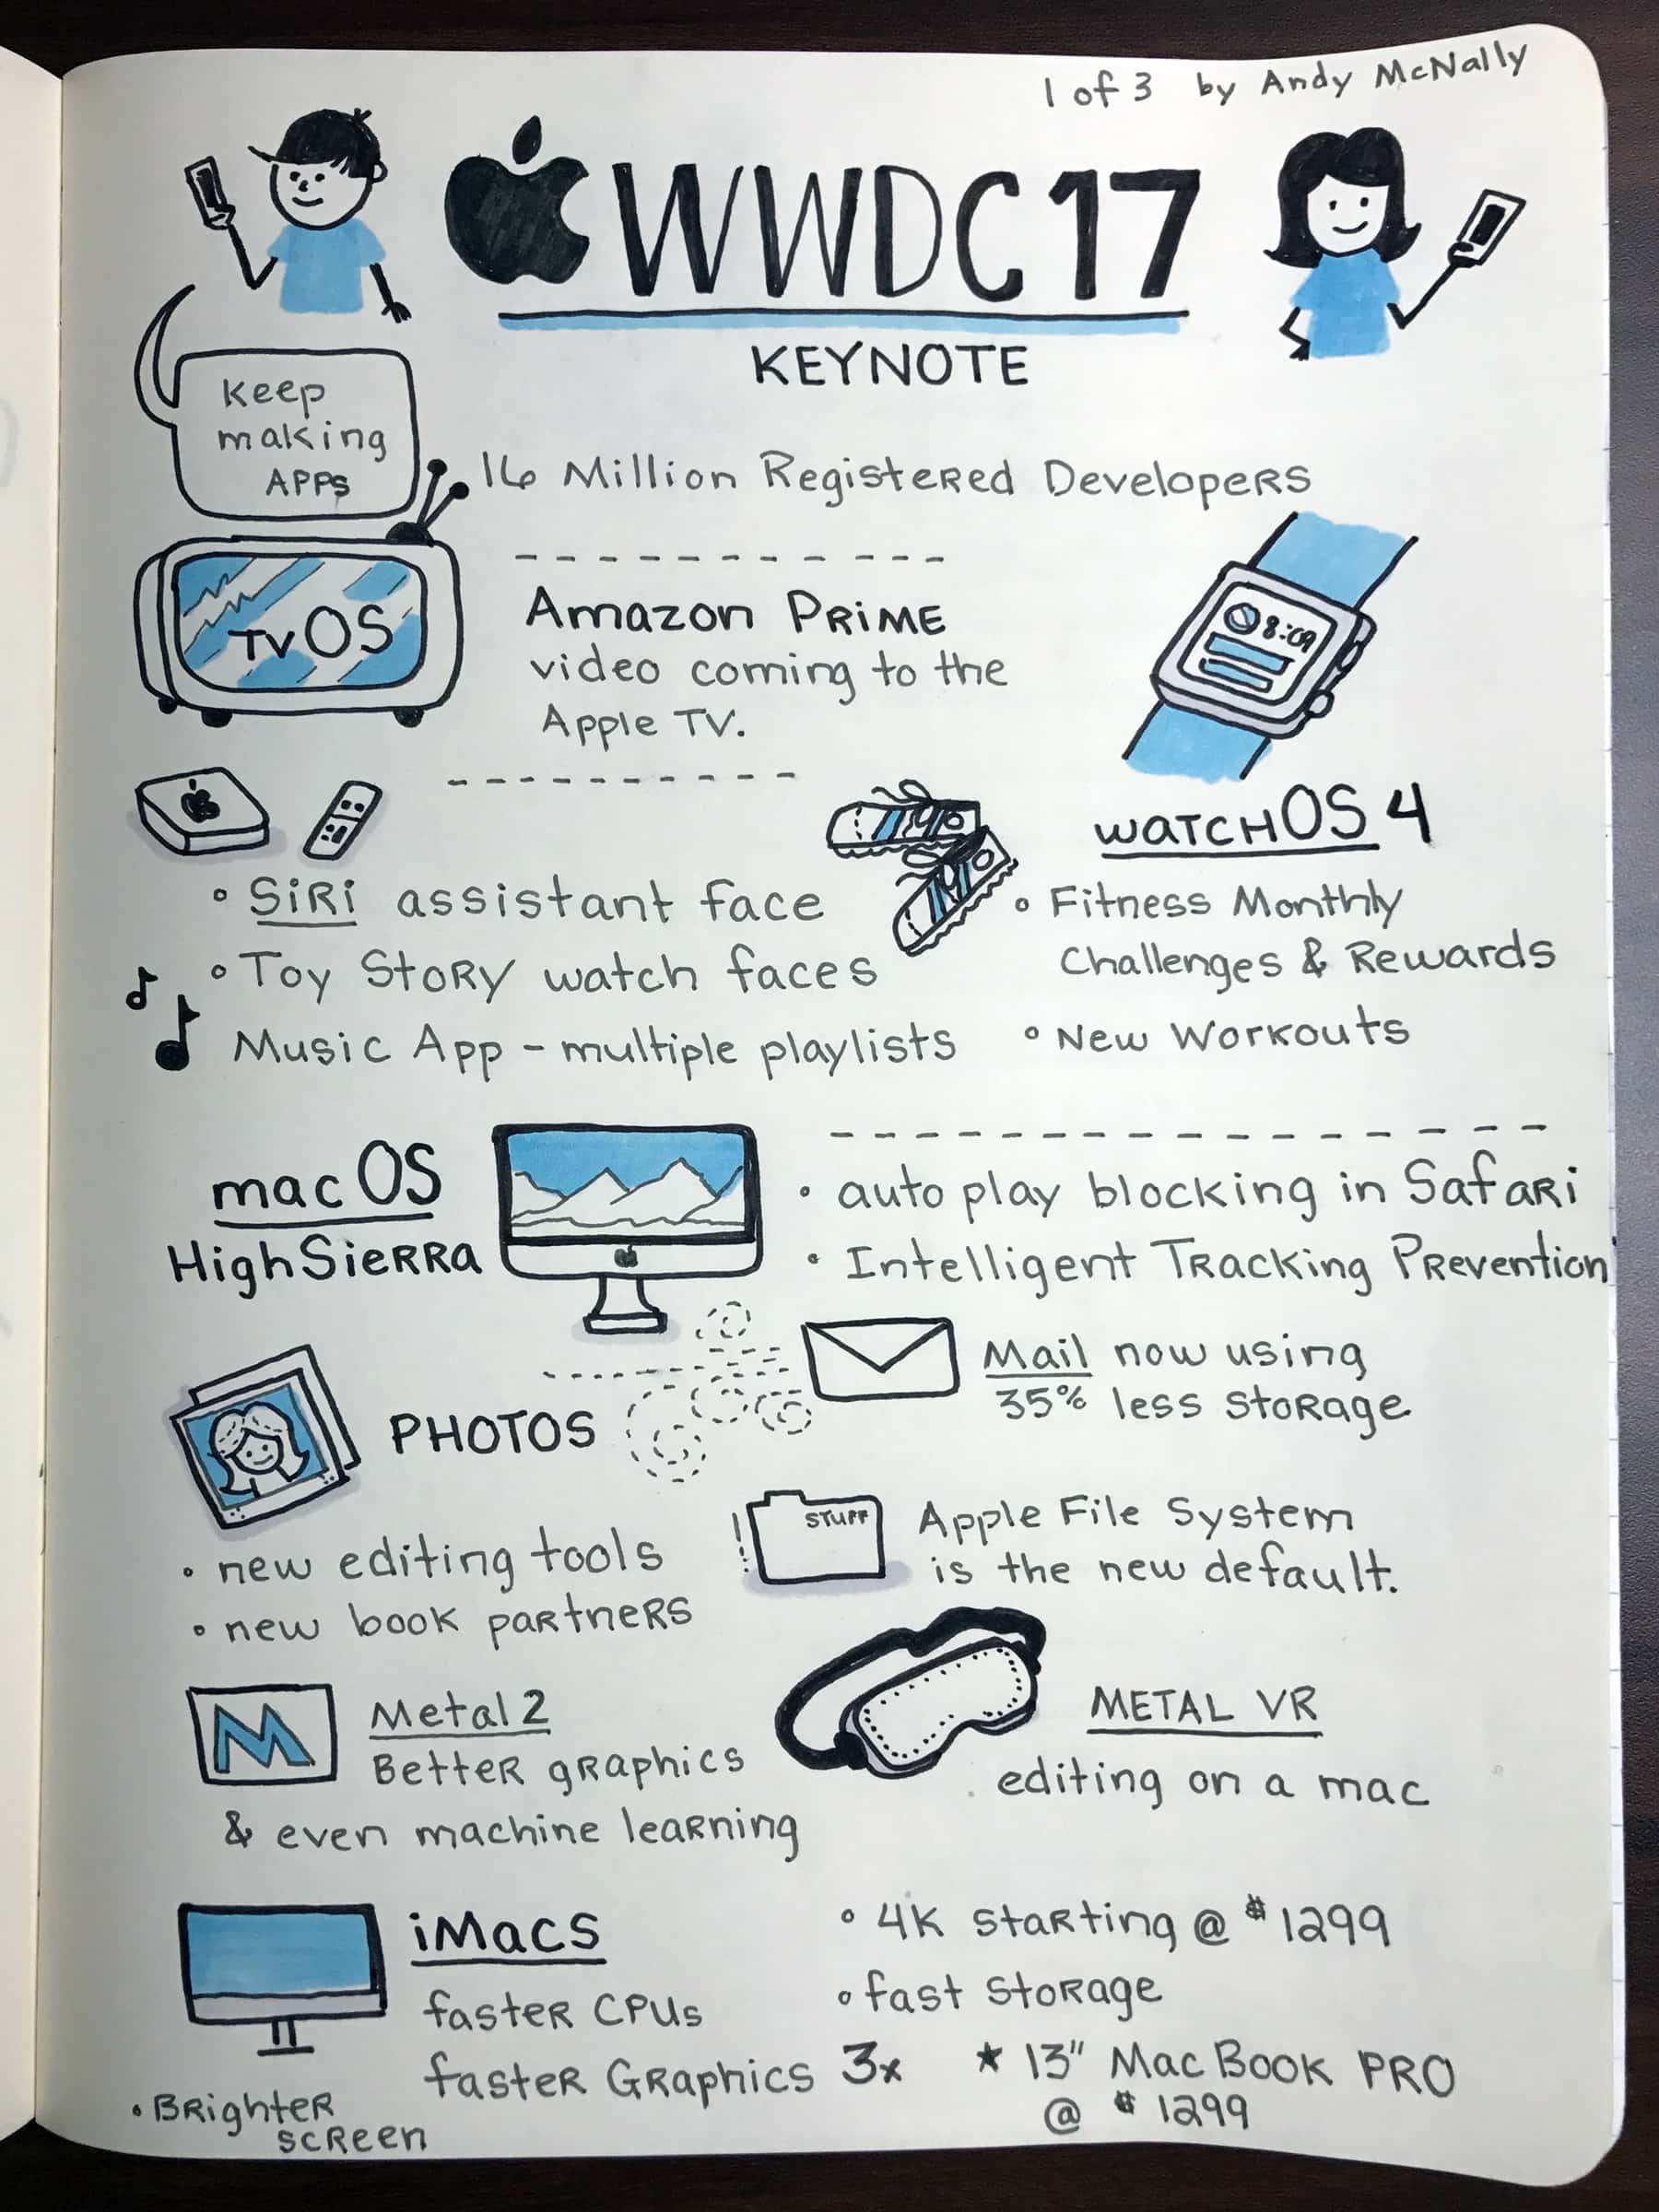 1 of 3 by Andy McNally
WWDC17
KEYNOTE
Keep
making
APPS
16 Million Registered Developers
tvOS
Amazon Prime
video coming to the
Apple TV.
8:09
watchOS 4
• Siri assistant face
• Toy Story watch faces
Music App - multiple playlists
• Fitness Monthly
Challenges & Rewards
• New Workouts
macOS
High Sierra
• auto play blocking in Safari
• Intelligent Tracking Prevention
Mail now using
35% less storage
PHOTOS
• new editing tools
• new book partners
STUFF
Apple File System
is the new default.
M
Metal 2
Better graphics
& even machine learning
METAL VR
editing on a mac
iMacs
faster CPUs
faster Graphics 3x
• Brighter
screen
• 4K starting @ $1299
• fast storage
★ 13" MacBook PRO
@ $1299